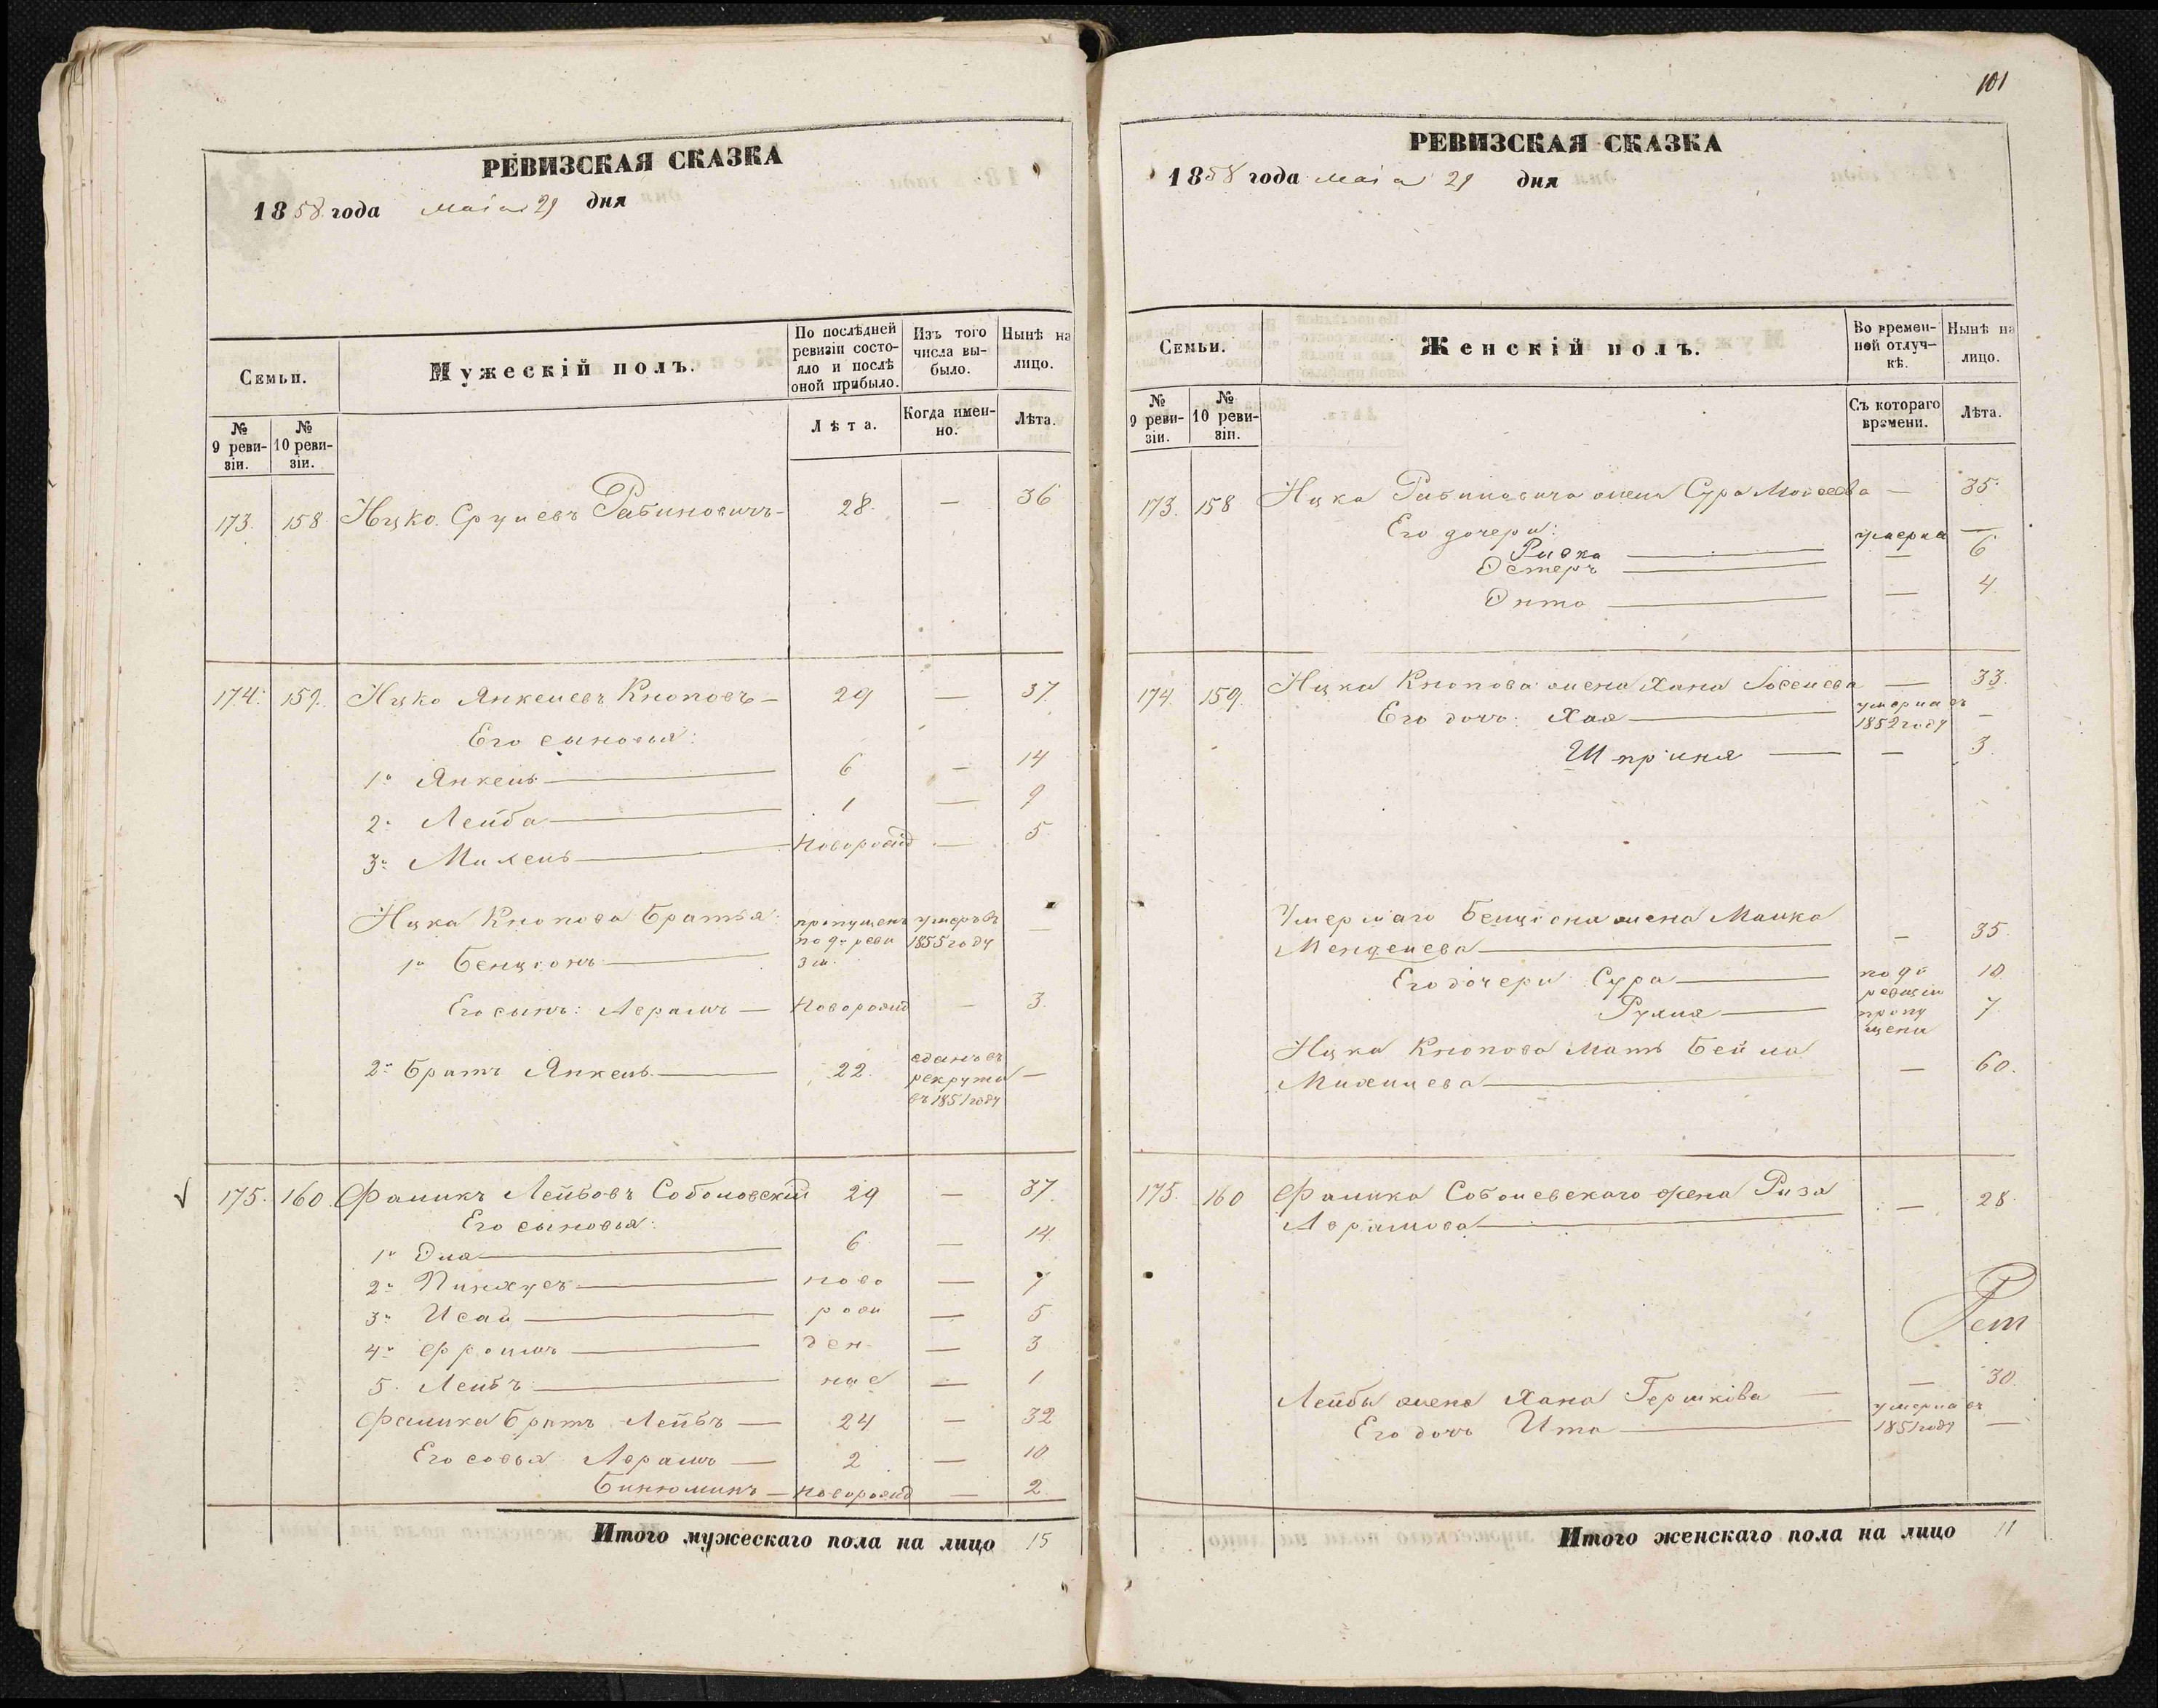 РЕВИЗСКАЯ СКАЗКА
1858 года маія 29 дня
Семьи.
Мужескій полъ.
По послѣдней ревизіи состояло и послѣ оной прибыло.
Изъ того числа выбыло.
Нынѣ на лицо.
№ 9 ревизіи.
№ 10 ревизіи.
Лѣта.
Когда именно.
Лѣта.
173. 158 Ицко Срулевъ Рабиновичъ 28. — 36
174. 159. Ицко Янкелевъ Кноповъ — 29 — 37.
Его сыновья:
1й Янкель 6 — 14
2й Лейба 1 — 9
3й Михель Новорожд — 5
Ицка Кнопова Братья:
1й Бенціонъ пропущенъ по 9й ревизіи умеръ въ 1855 году —
Его сынъ: Аврамъ — Новорожд — 3.
2й Братъ Янкель 22. сданъ въ рекруты въ 1851 году —
175. 160 Фаликъ Лейбовъ Соболовскій 29 — 37.
Его сыновья:
1й Эля 6 — 14
2й Пинхусъ ново — 7
3й Исай рож — 5
4й Фроимъ ден — 3
5. Лейбъ ные — 1
Фалика Братъ Лейбъ — 24 — 32
Его совья Аврамъ — 2 — 10
Бинюминъ — новорожд — 2
Итого мужескаго пола на лицо 15
101
РЕВИЗСКАЯ СКАЗКА
1858 года маія 29 дня
Семьи.
Женскій полъ.
Во временной отлучкѣ.
Нынѣ на лицо.
№ 9 ревизіи.
№ 10 ревизіи.
Съ котораго времени.
Лѣта.
173. 158 Ицка Рабиновича жена Сура Мовшева — 35.
Его дочери:
Ривка умерла —
Эстеръ — 6
Энта — 4
174. 159. Ицки Кнопова жена Хана Іоселева — 33.
Его дочь: Хая умерла въ 1852 году —
Шприня — 3.
Умершаго Бенціона жена Малка
Менделева — 35.
Его дочери Сура по 9й 10
ревизіи
Рухля пропущены 7
Ицка Кнопова Мать Бейла
Михелева — 60.
175. 160 Фалика Соболевскаго жена Риза
Аврамова — 28.
Лейбы жена Хана Гершкова — 30.
Его дочь Ита умерла въ 1851 году —
Итого женскаго пола на лицо 11